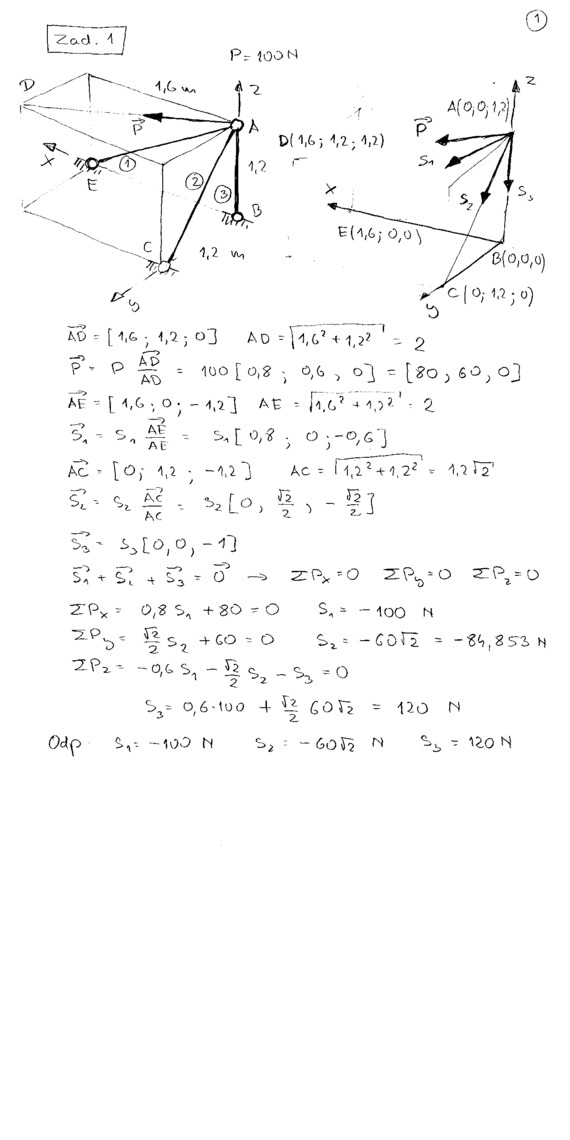 1
Zad. 1
P = 100 N
D
1,6 m
z
P⃗
A
x
1
2
3
1,2
E
B
C
1,2 m
y
z
A(0;0;1,2)
D(1,6; 1,2; 1,2)
P⃗
S1
S2
S3
x
E(1,6; 0,0)
B(0,0,0)
C(0; 1,2; 0)
y
AD⃗ = [1,6; 1,2; 0] AD = √(1,6² + 1,2²) = 2
P⃗ = P AD⃗/AD = 100[0,8; 0,6, 0] = [80, 60, 0]
AE⃗ = [1,6; 0; -1,2] AE = √(1,6² + 1,2²) = 2
S1⃗ = S1 AE⃗/AE = S1[0,8; 0; -0,6]
AC⃗ = [0; 1,2; -1,2] AC = √(1,2² + 1,2²) = 1,2√2
S2⃗ = S2 AC⃗/AC = S2[0, √2/2, -√2/2]
S3⃗ = S3[0,0,-1]
S1⃗ + S2⃗ + S3⃗ = 0⃗ → ΣPx=0 ΣPy=0 ΣPz=0
ΣPx = 0,8 S1 + 80 = 0 S1 = -100 N
ΣPy = √2/2 S2 + 60 = 0 S2 = -60√2 = -84,853 N
ΣPz = -0,6 S1 - √2/2 S2 - S3 = 0
S3 = 0,6·100 + √2/2 60√2 = 120 N
Odp. S1 = -100 N S2 = -60√2 N S3 = 120 N